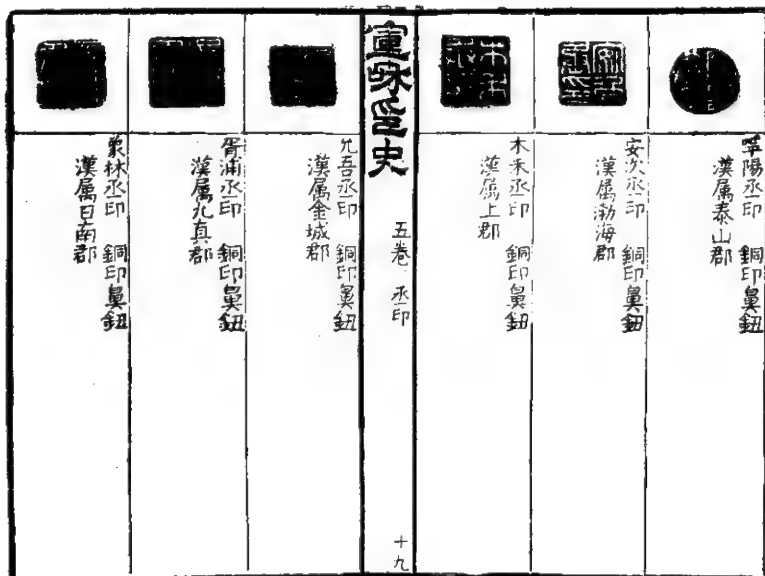 陽丞印 銅印鼻鈕
漢属泰山郡
安次丞印 銅印鼻鈕
漢属渤海郡
木禾丞印 銅印鼻鈕
漢属上郡
宣和印史 五卷 丞印 十九
允吾丞印 銅印鼻鈕
漢属金城郡
胥浦丞印 銅印鼻鈕
漢属九真郡
象林丞印 銅印鼻鈕
漢属日南郡